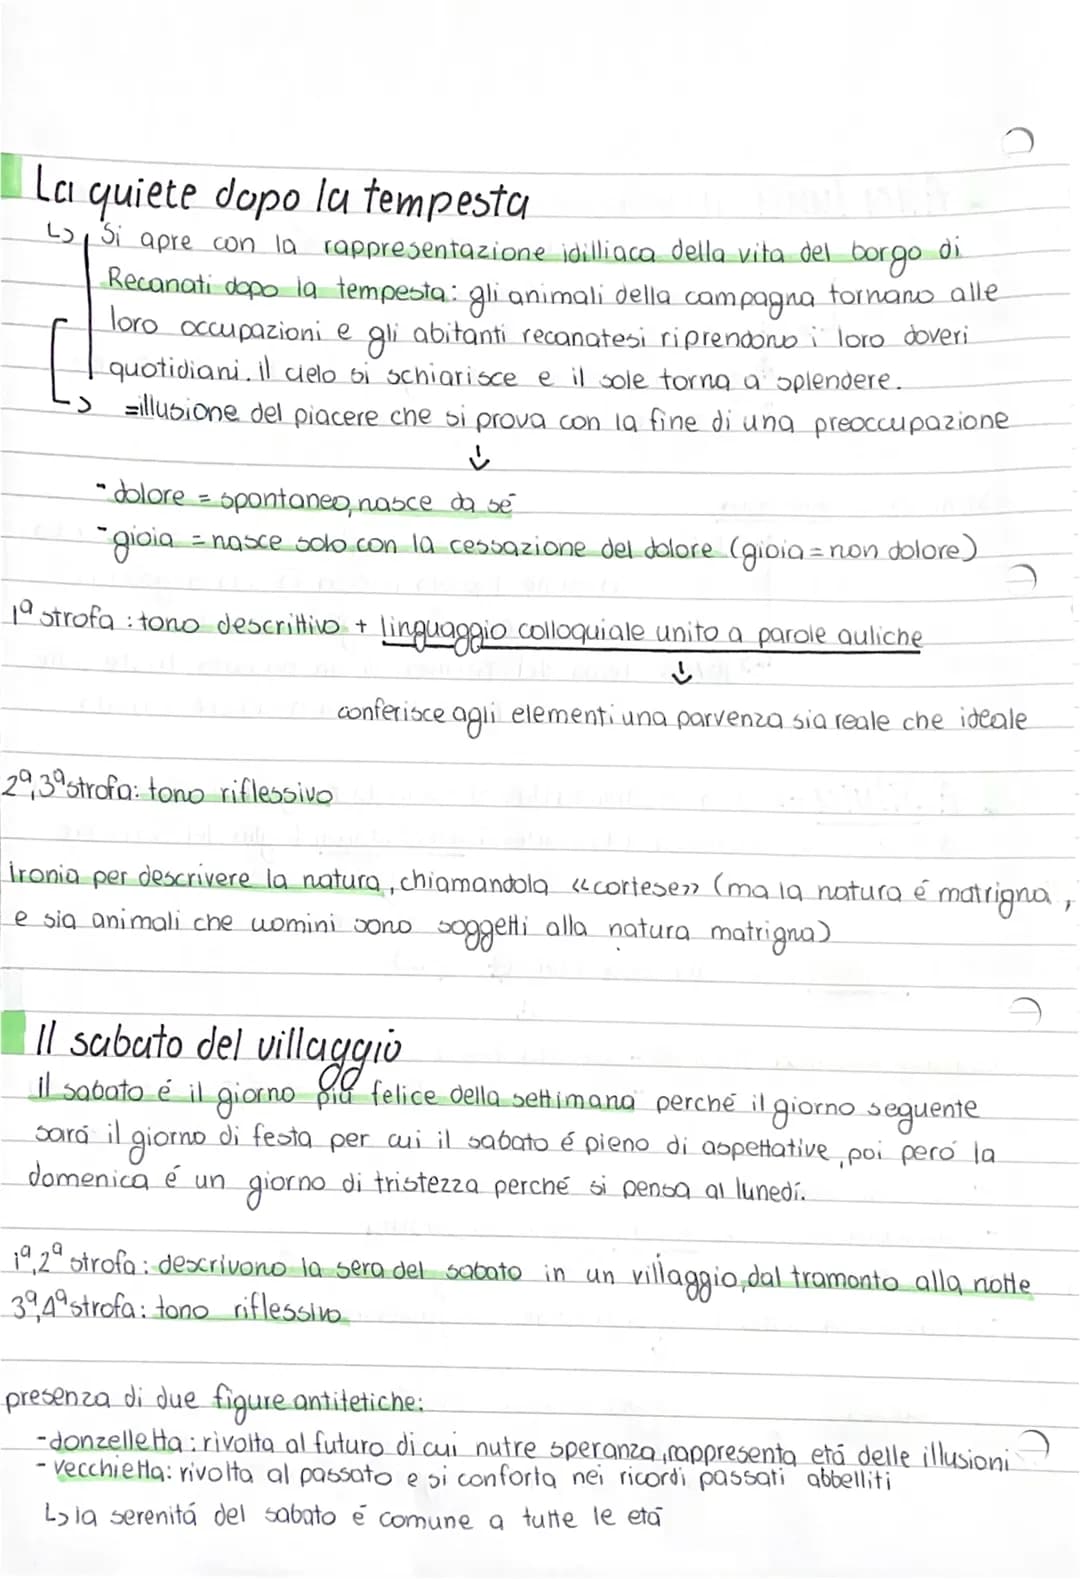 La quiete dopo la tempesta
↳ Si apre con la rappresentazione idilliaca della vita del borgo di
Recanati dopo la tempesta: gli animali della campagna tornano alle
loro occupazioni e gli abitanti recanatesi riprendono i loro doveri
quotidiani. il cielo si schiarisce e il sole torna a splendere.
↳ =illusione del piacere che si prova con la fine di una preoccupazione
↓
- dolore = spontaneo, nasce da sé
- gioia = nasce solo con la cessazione del dolore (gioia = non dolore)
1ª strofa : tono descrittivo + linguaggio colloquiale unito a parole auliche
↓
conferisce agli elementi una parvenza sia reale che ideale
2ª,3ª strofa: tono riflessivo
ironia per descrivere la natura, chiamandola «cortese» (ma la natura é matrigna,
e sia animali che uomini sono soggetti alla natura matrigna)
Il sabato del villaggio
il sabato é il giorno piú felice della settimana perché il giorno seguente
sará il giorno di festa per cui il sabato é pieno di aspettative, poi peró la
domenica é un giorno di tristezza perché si pensa al lunedí.
1ª,2ª strofa: descrivono la sera del sabato in un villaggio, dal tramonto alla notte
3ª,4ª strofa: tono riflessivo
presenza di due figure antitetiche:
-donzelletta : rivolta al futuro di cui nutre speranza, rappresenta etá delle illusioni
- vecchietta: rivolta al passato e si conforta nei ricordi passati abbelliti
↳ la serenitá del sabato é comune a tutte le etá